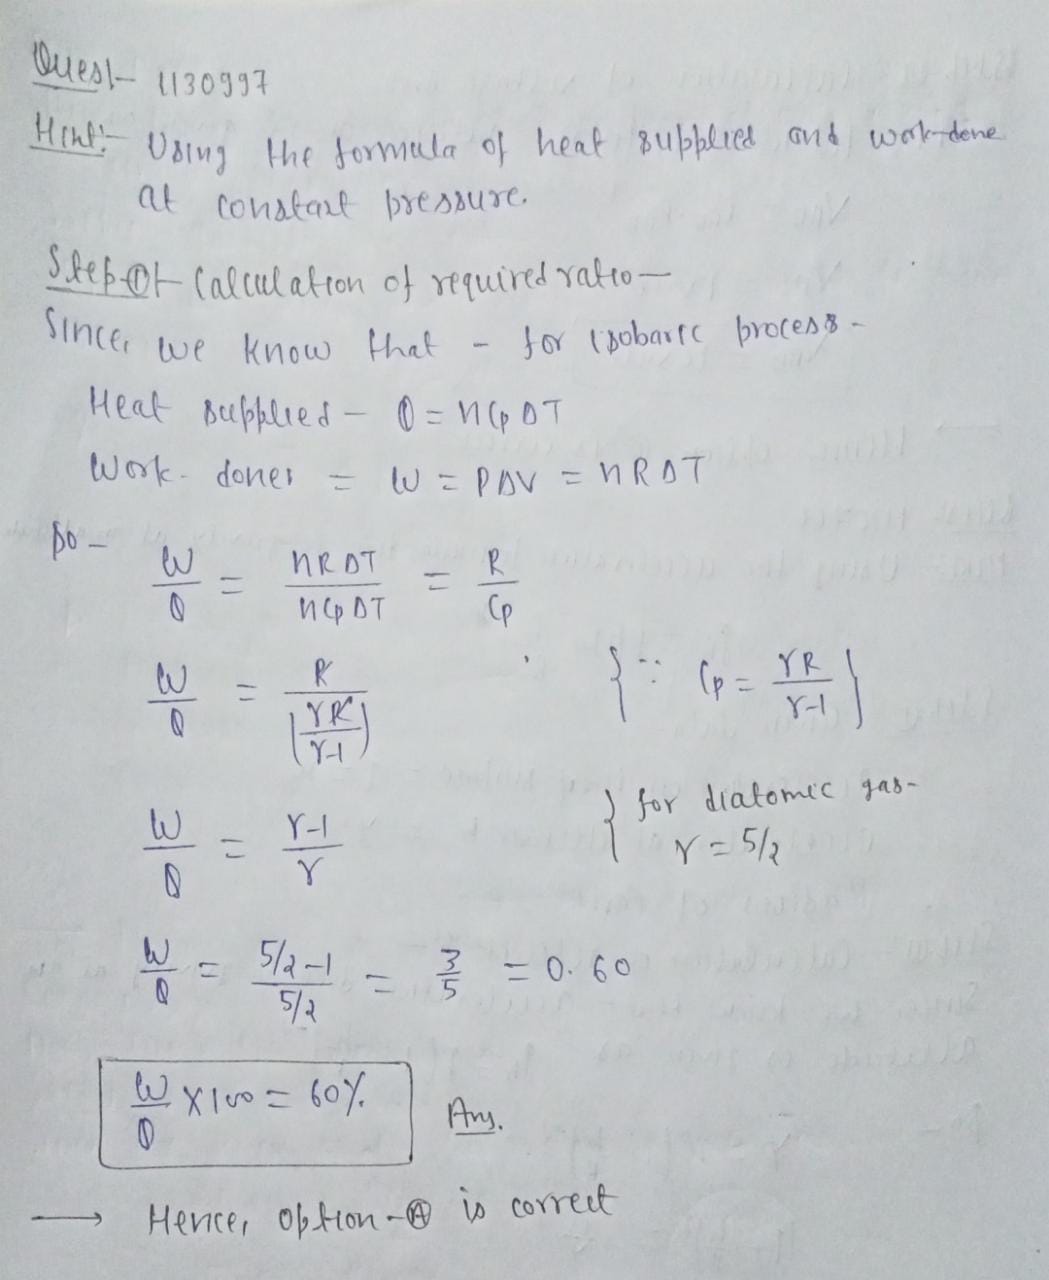 Quest- 1130997
Hint:- Using the formula of heat supplied and work-done
at constant pressure.
Step-01- Calculation of required ratio-
Since, we know that - for isobaric process-
Heat supplied - Q = nCpΔT
Work-done, = W = PΔV = nRΔT
so- W/Q = nRΔT/nCpΔT = R/Cp
W/Q = R/(γR/γ-1) {∵ Cp = γR/γ-1}
W/Q = γ-1/γ { for diatomic gas- γ = 5/2
W/Q = 5/2-1/5/2 = 3/5 = 0.60
W/Q × 100 = 60% Ans.
→ Hence, option-(A) is correct